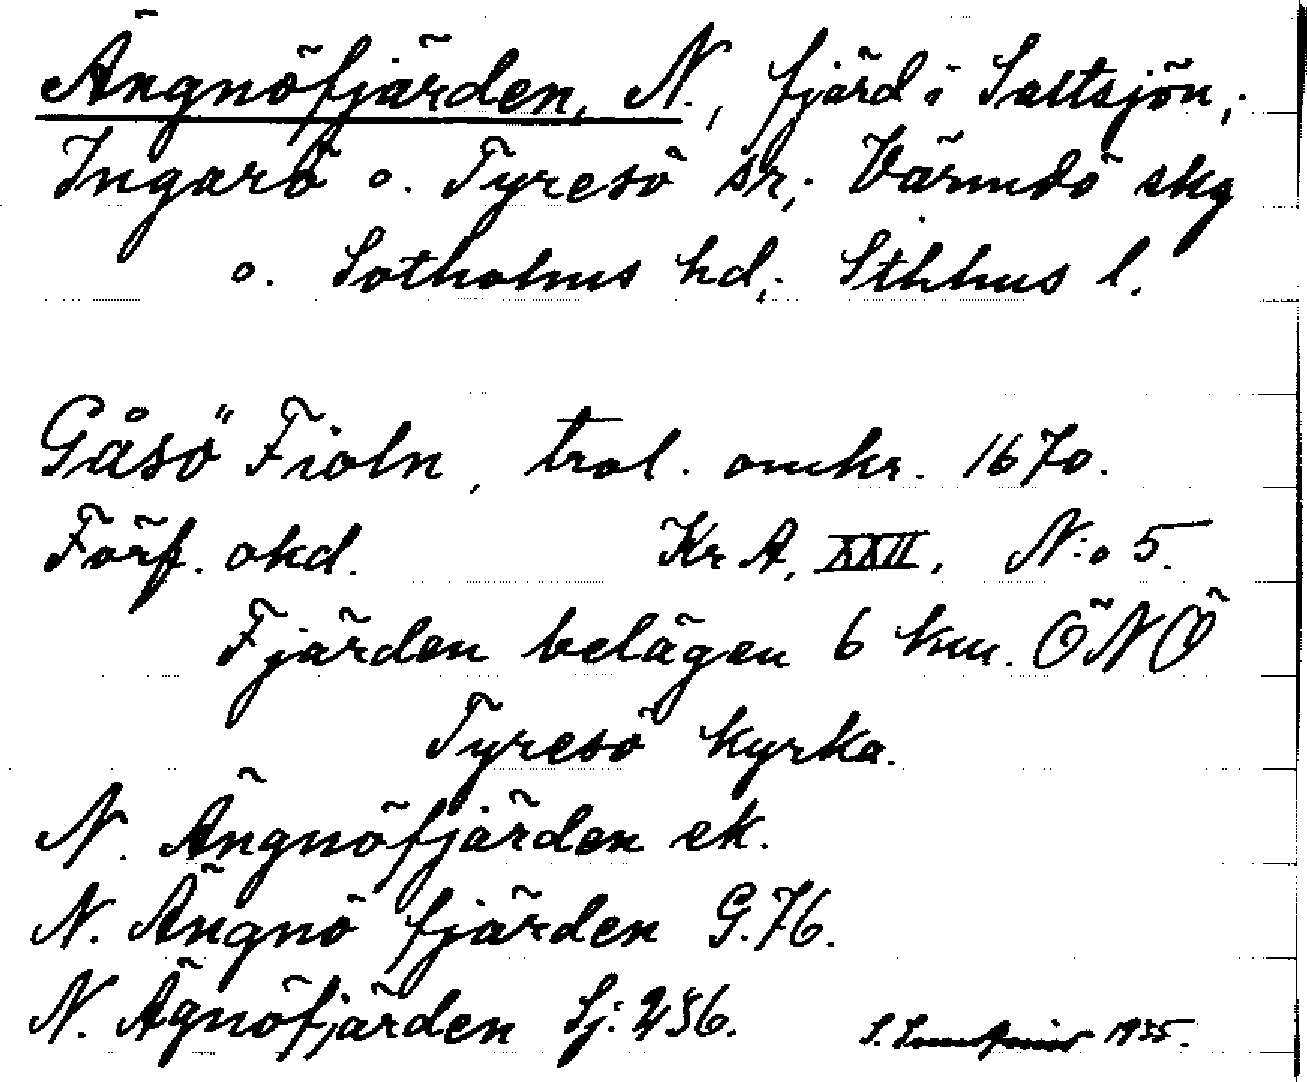 Ängnöfjärden, N., fjärd i Saltsjön,;
Ingarö o. Tyresö sr,; Värmdö skg
o. Sotholms hd,; Sthlms l.
Gåsö Fioln, trol. omkr. 1670.
Förf. okd. Kr A, XXII, N:o 5.
Fjärden belägen 6 km. ÖNÖ
Tyresö kyrka.
N. Ängnöfjärden ek.
N. Ängnö fjärden G.76.
N. Ägnöfjärden Sj: 256.
S. 1935.